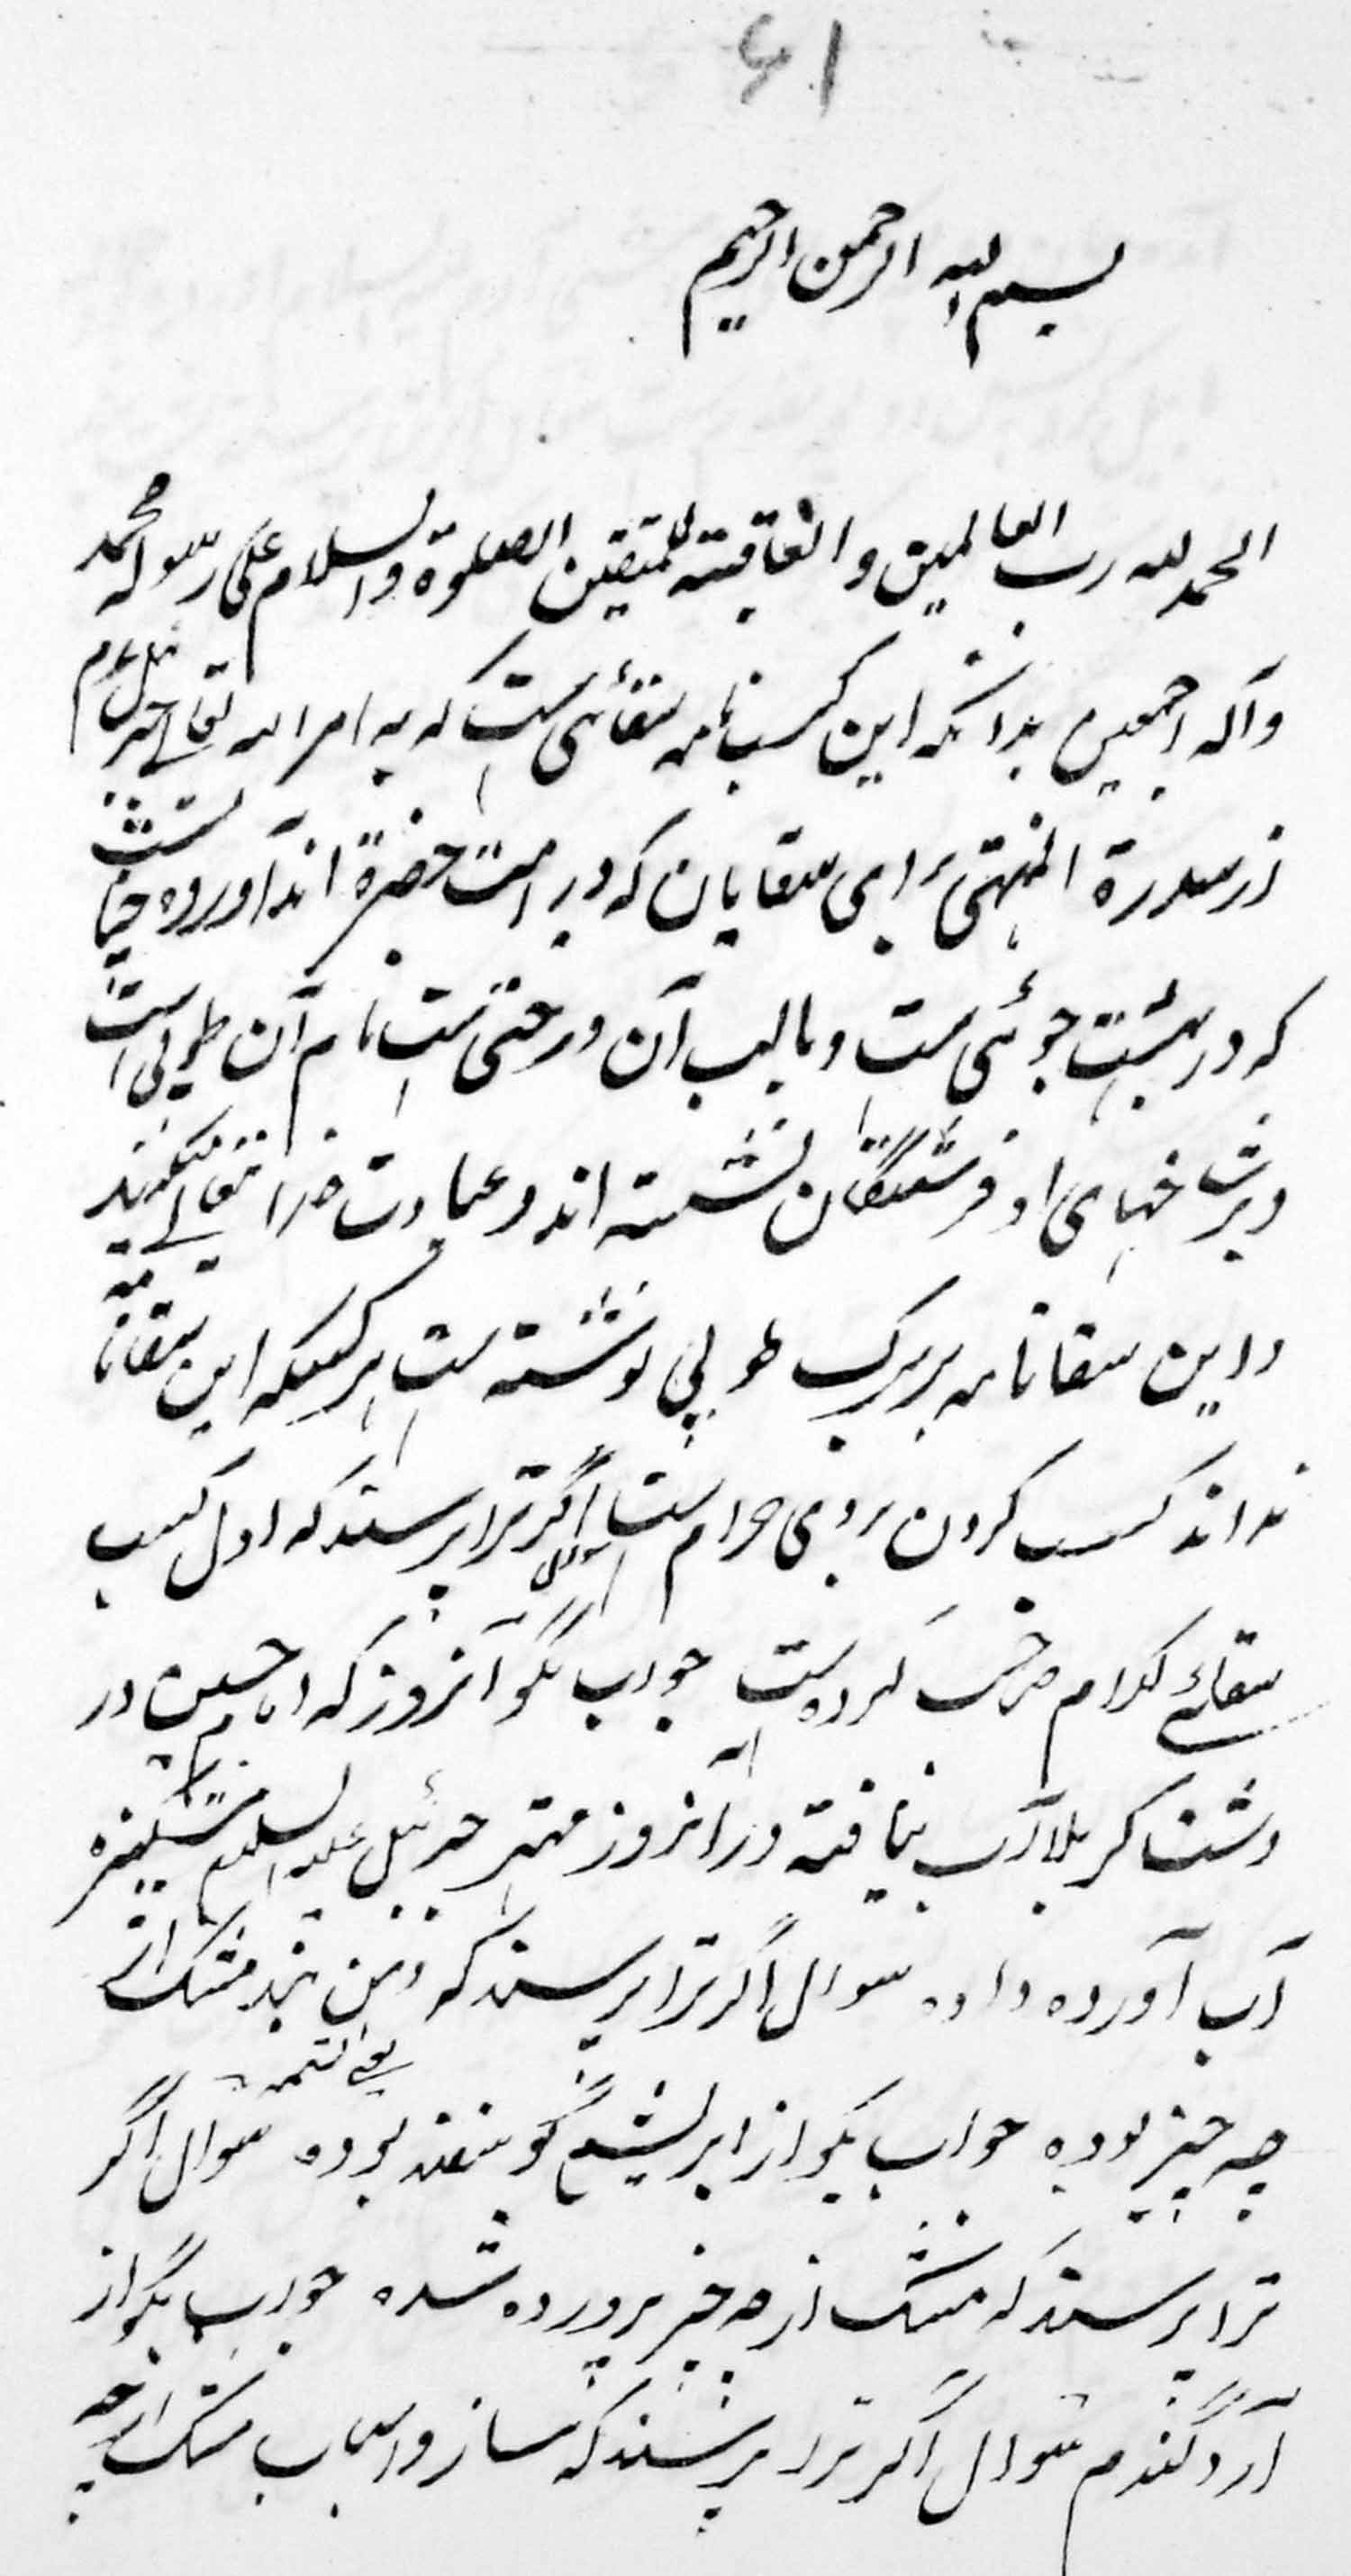 ۶۱
بسم الله الرحمن الرحیم
الحمد لله رب العالمین و العاقبة للمتقین الصلوة والسلام علی رسوله محمد
وآله اجمعین بدانکه این کسب نامه سقائی است که به امر الله تعالی جبرئیل ع م
از سدرة المنتهی برای سقایان که در امت حضرة اند آورده چنانست
که در بهشت جوئی است و بالب آن درختی است نام آن طوبی است
وبر شاخهای او فرشتگان نشسته اند و عبادت خدا تعالی میکنند
و این سقانامه بر برگ طوبی نوشته است هر کسیکه این سقانامه
نداند کسب کردن بروی حرام است سوال اگر ترا پرسند که اول کسب
سقائے کدام کس کرده است جواب بگو آنروز که امام حسین در
دشت کربلا آب نیافته در آنروز مهتر جبرئیل علیه السلام مشکیزه
آب آورده داده سوال اگر ترا پرسند که دهن بند مشک از
چه چیز بوده جواب بگو از ابریشم گوسفند بوده یعنی تسمه سوال اگر
ترا پرسند که مشک از چه چیز پرورده شده جواب بگو از
آرد گندم سوال اگر ترا پرسند که ساز و اسباب مشک از چه